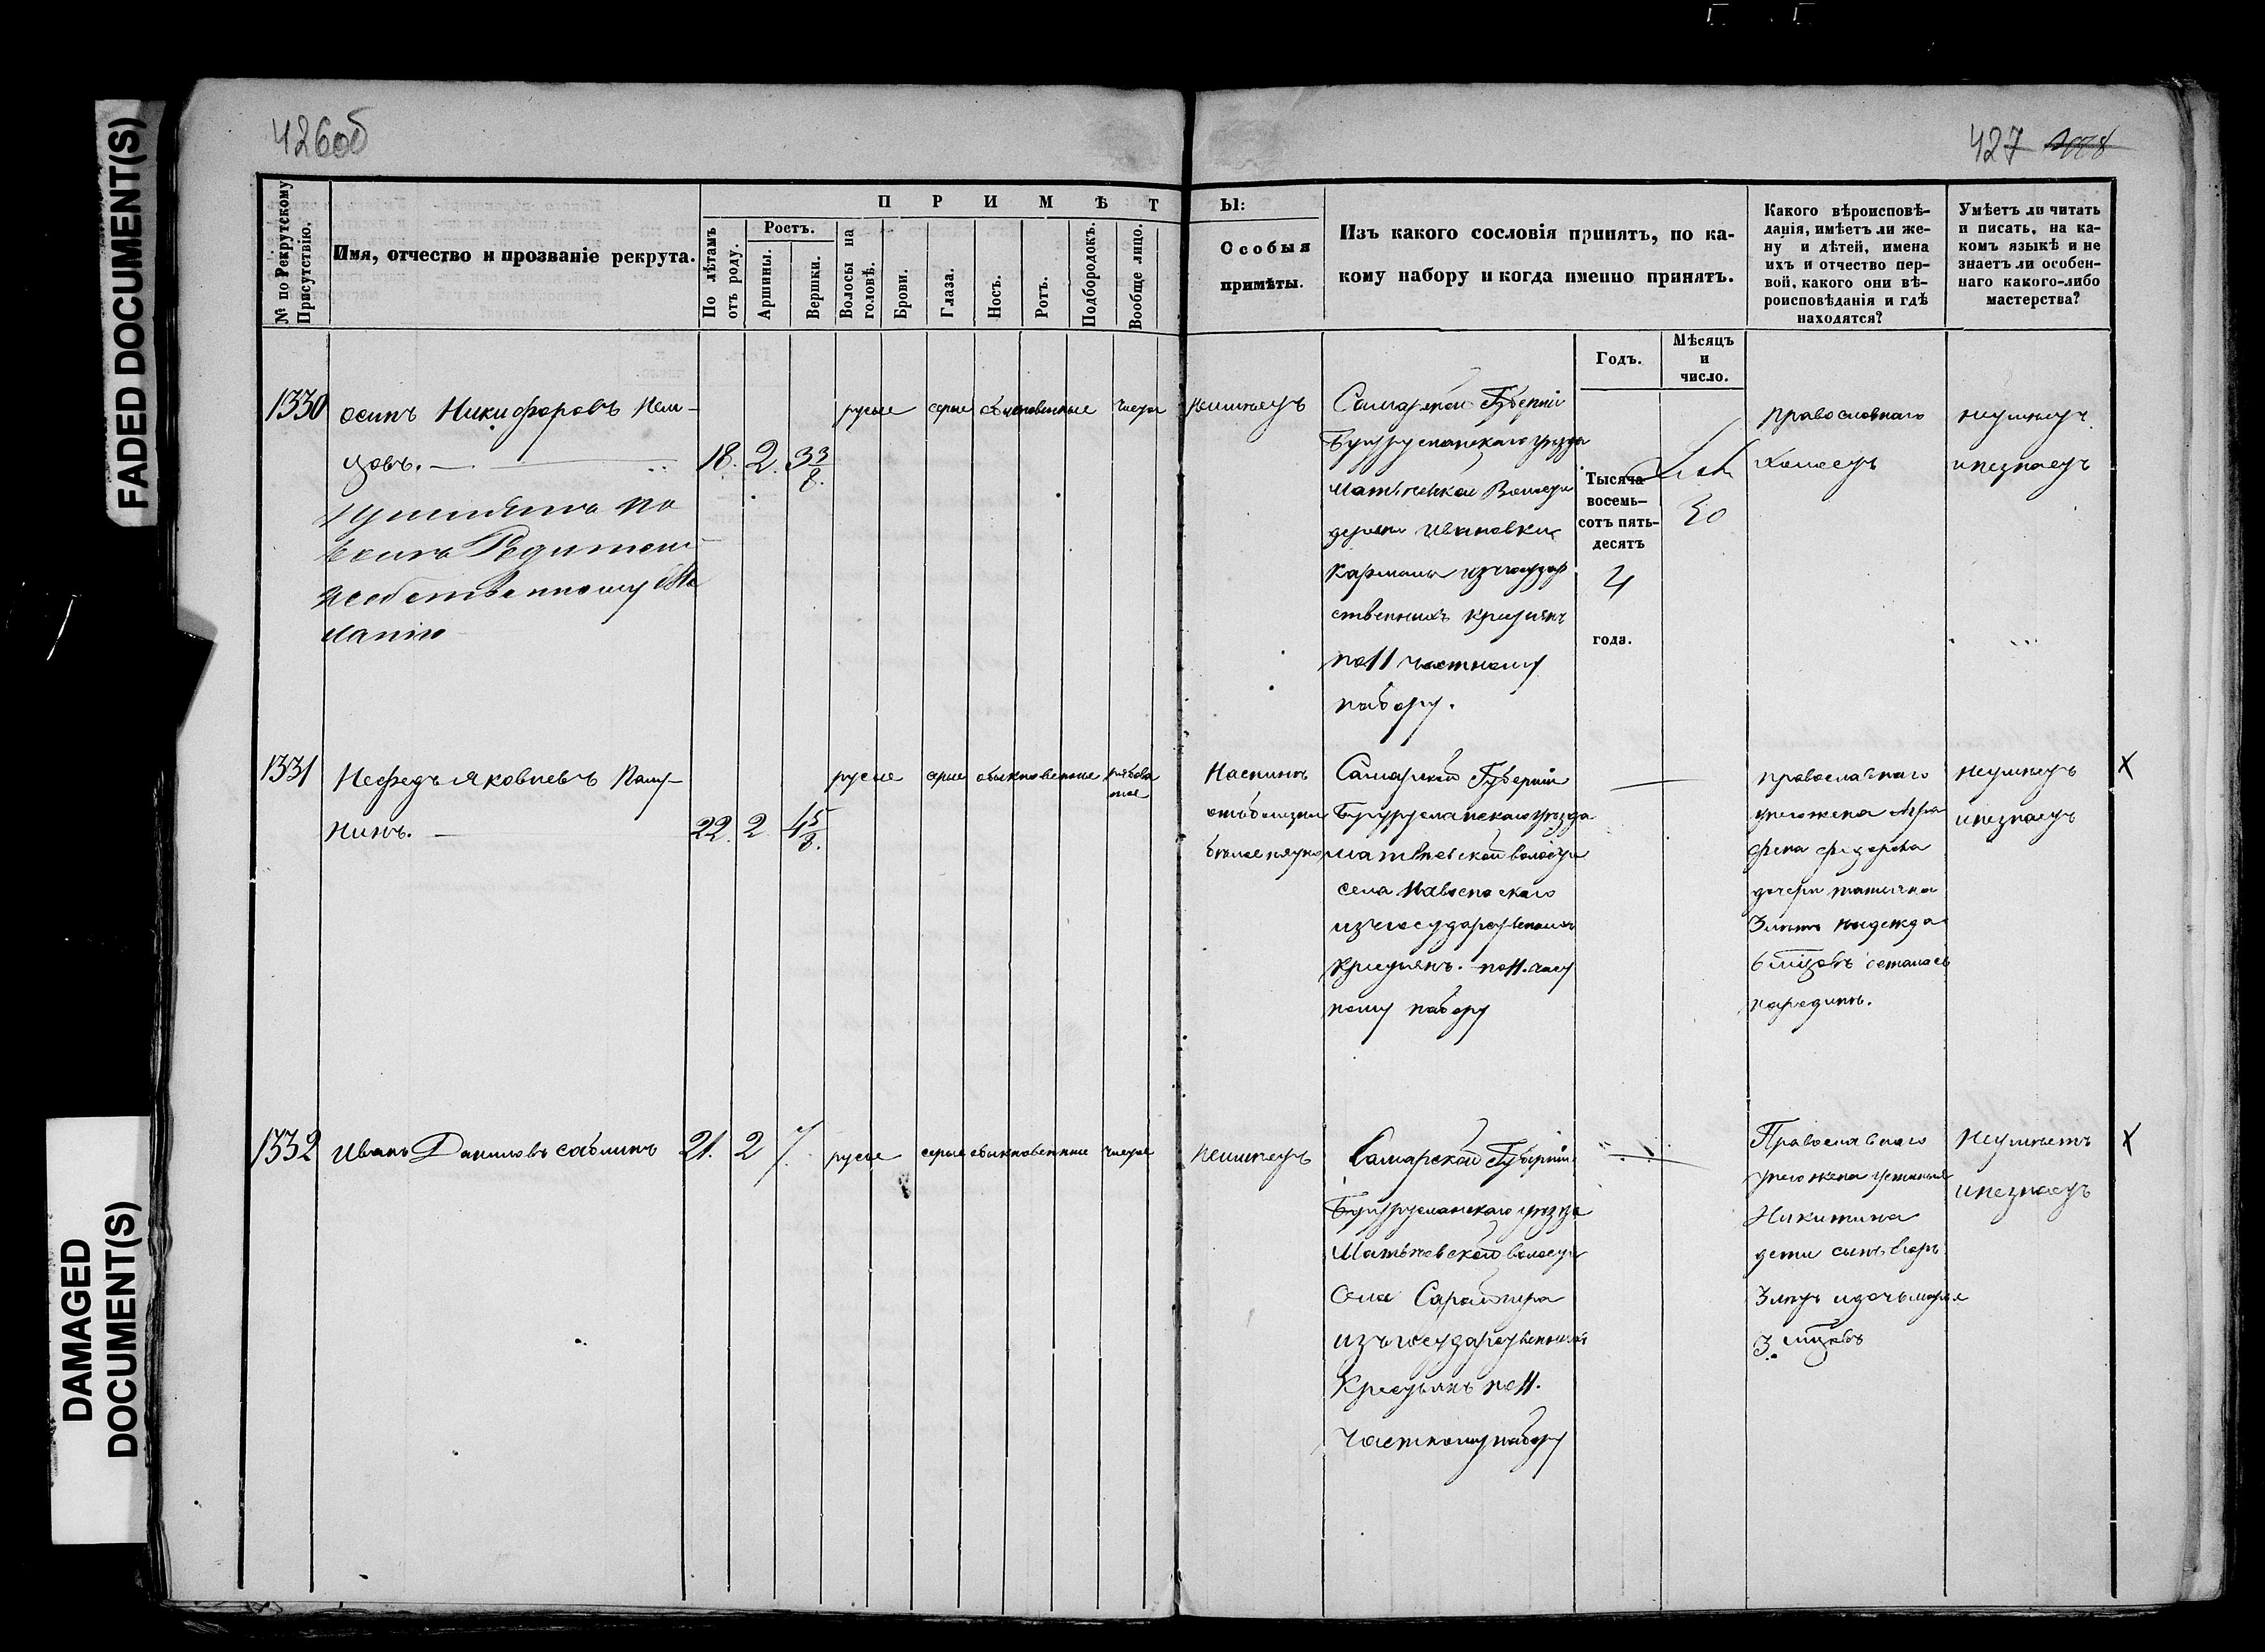 FADED DOCUMENT(S)
DAMAGED
DOCUMENT(S)
426об
427
№ по Рекрутскому Присутствію.
Имя, отчество и прозваніе рекрута.
П Р И М Ѣ Т Ы:
По лѣтамъ отъ роду.
Ростъ.
Аршины.
Вершки.
Волосы на головѣ.
Брови.
Глаза.
Носъ.
Ротъ.
Подбородокъ.
Вообще лицо.
Особыя
примѣты.
Изъ какого сословія принятъ, по ка-
кому набору и когда именно принятъ.
Годъ.
Мѣсяцъ
и
число.
Какого вѣроисповѣ-
данія, имѣетъ ли же-
ну и дѣтей, имена
ихъ и отчество пер-
вой, какого они вѣ-
роисповѣданія и гдѣ
находятся?
Умѣетъ ли читать
и писать, на ка-
комъ языкѣ и не
знаетъ ли особен-
наго какого-либо
мастерства?
1330
осипъ Никифоровъ Нем-
цовъ.
18. 2. 3 3/8.
русые серые обыкновенные чистое
неимѣетъ
Самарской Губерніи
Бугурусланскаго уѣзда
Матвѣевской Волости
деревни Ивановки
Кармалы изъ государ
ственныхъ крестьянъ
по 11 частному
набору.
Тысяча
восемь-
сотъ пять-
десятъ
4
года.
30
православнаго
холостъ
неумѣетъ
и незнаетъ
1331
Нефедъ Яковлевъ
нинъ.
22. 2 4 5/8.
русые серые обыкновенные рябова
тое
На спинѣ
отъ болезни
белое пятно
Самарской Губерніи
Бугурусланскаго уѣзда
матвѣевской волости
села
изъ государственныхъ
крестьянъ. по 11. част
ному набору
православнаго
у него жена Агра
фена федорова
дочери
3 летъ надежда
6 мцовъ осталась
народинѣ.
неумѣетъ
и незнаетъ
X
1332
Иванъ Даниловъ саблинъ
21. 2 7.
русые серые обыкновенные чистое
неимѣетъ
Самарской Губерніи
Бугурусланскаго уѣзда
Матвѣевской волости
Села Сарайгира
изъ государственныхъ
Крестьянъ по 11.
частному набору
Православнаго
у него жена устинья
Никитина
дети сынъ егоръ
3 летъ и дочь марья
3. мцовъ
Неумѣетъ
и незнаетъ
X